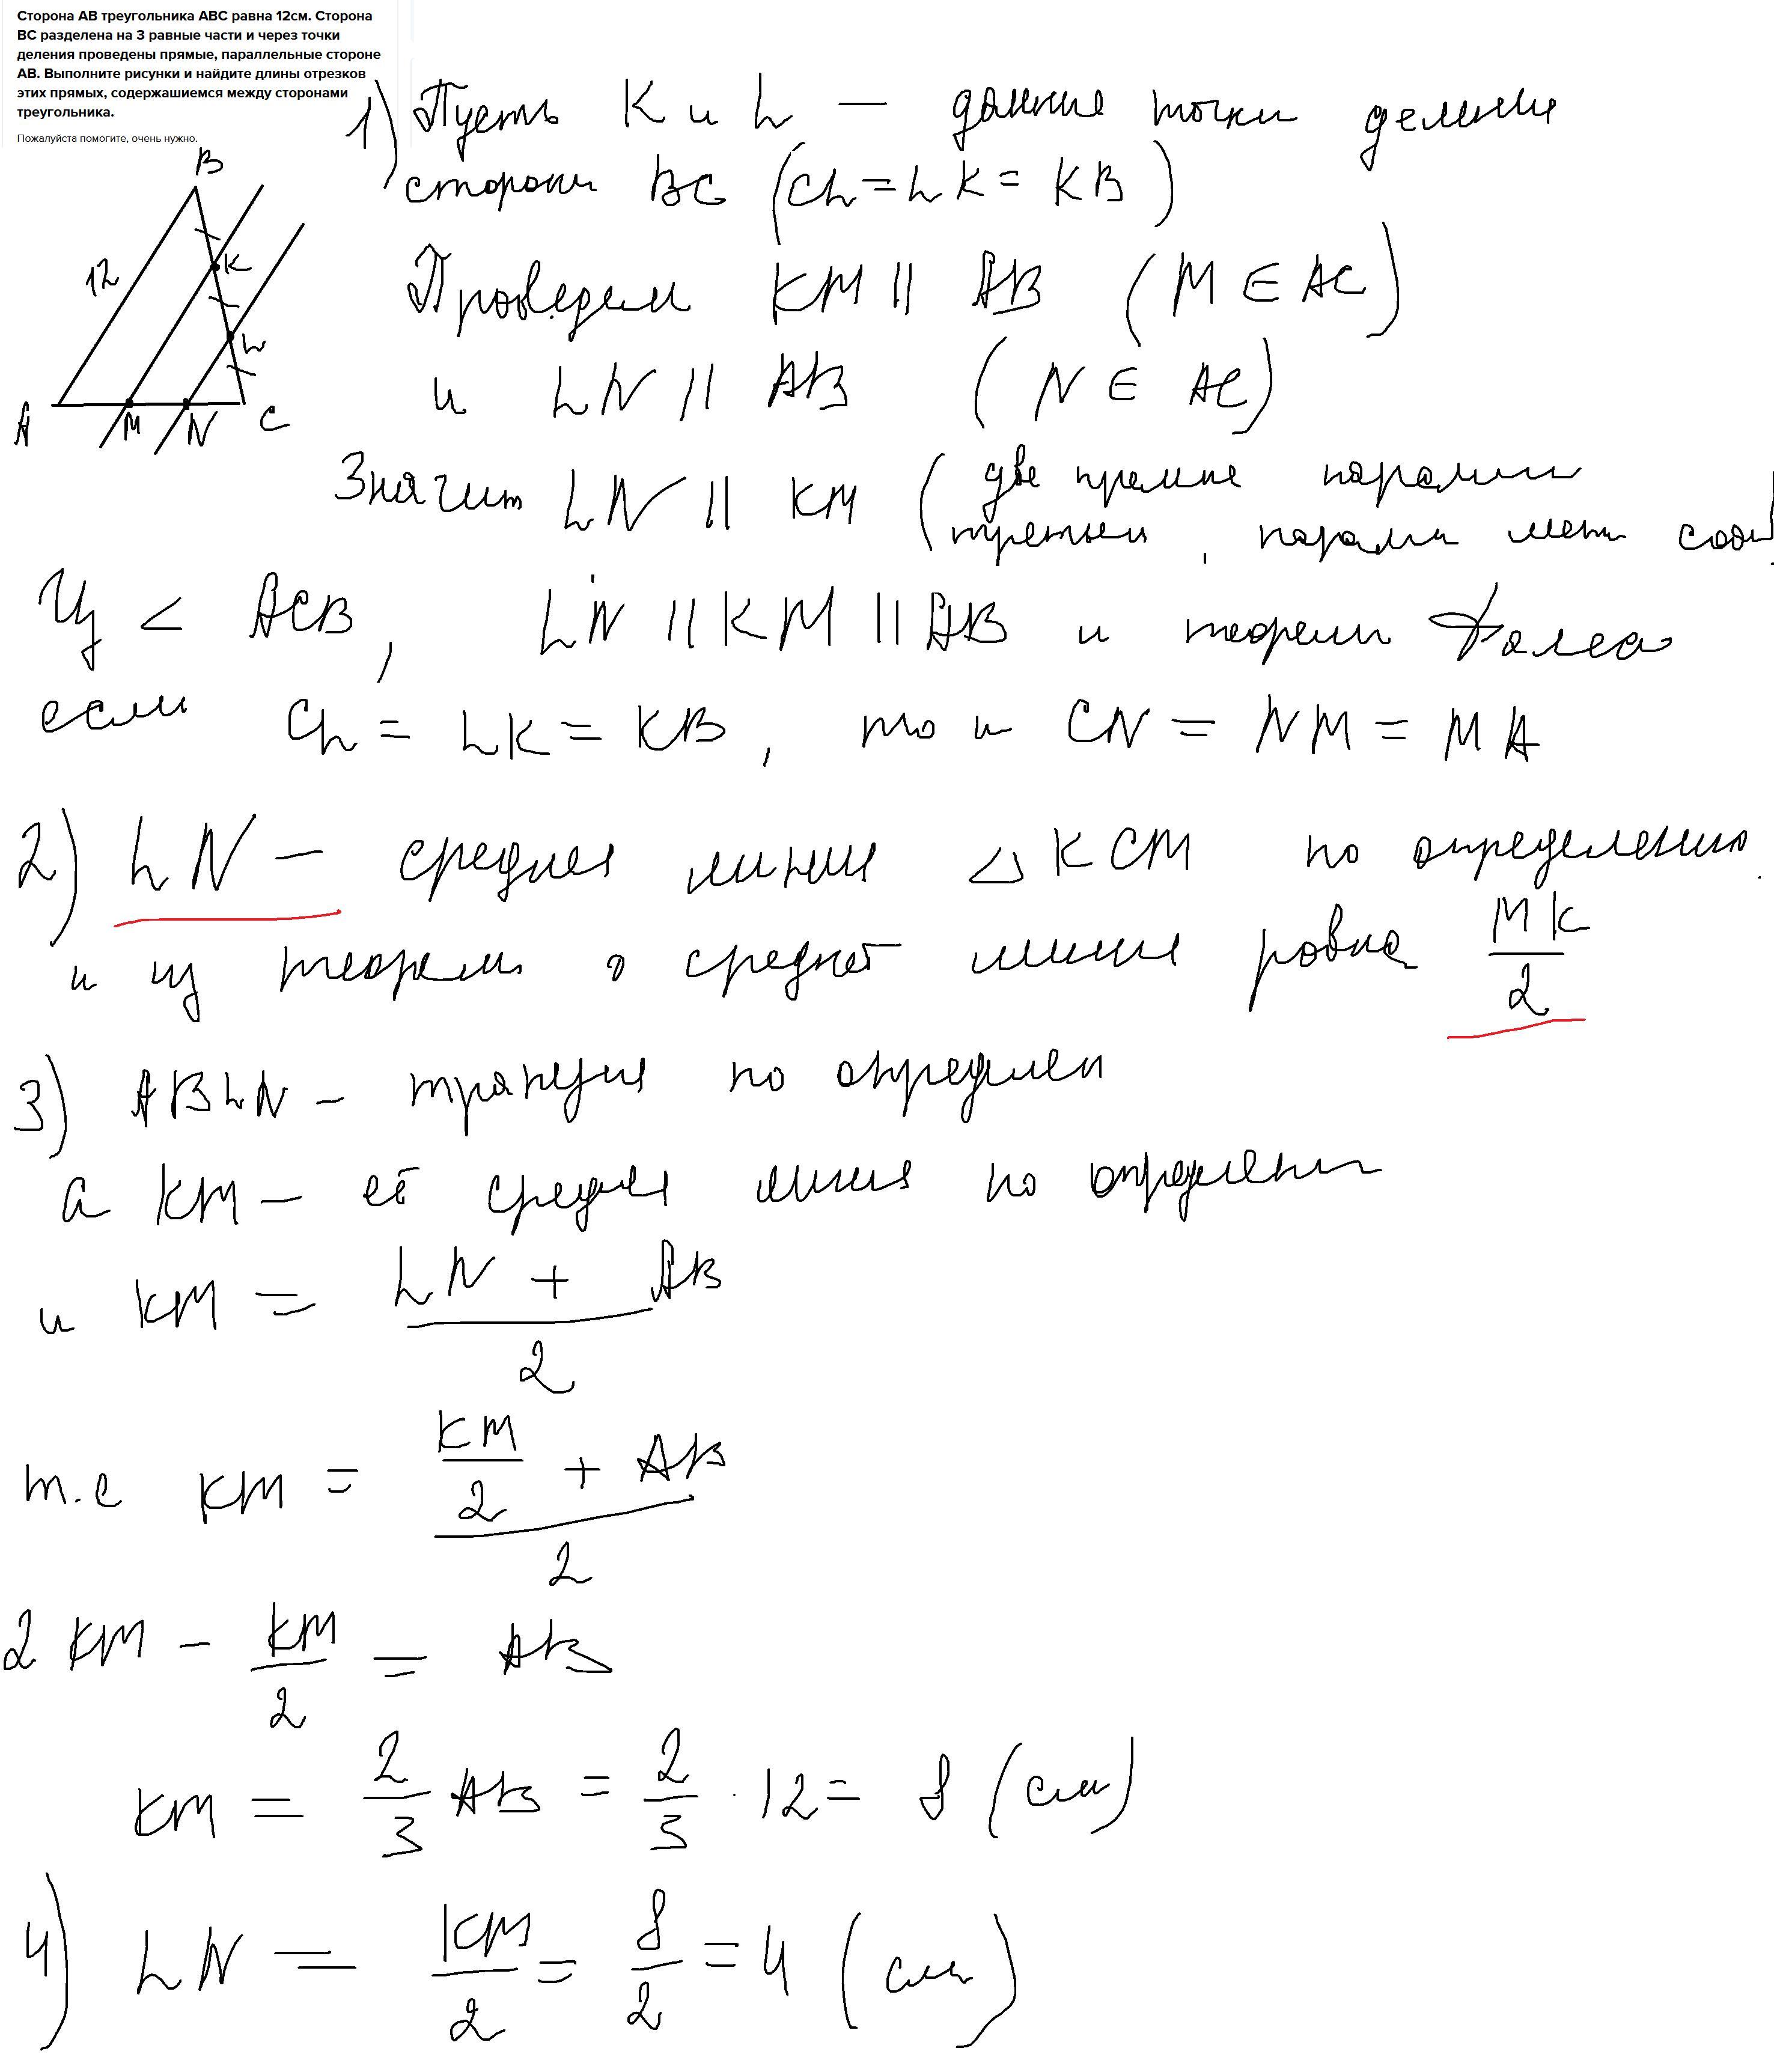 Сторона АВ треугольника АВС равна 12см. Сторона
ВС разделена на 3 равные части и через точки
деления проведены прямые, параллельные стороне
АВ. Выполните рисунки и найдите длины отрезков
этих прямых, содержашиемся между сторонами
треугольника.
Пожалуйста помогите, очень нужно.
B
12
K
L
A
M
N
C
1) Пусть K и L — данные точки деления
стороны BC (CL = LK = KB)
Проведем KM || AB (M ∈ AC)
и LN || AB (N ∈ AC)
Значит LN || KM (две прямые
третьей,
Из < ACB, LN || KM || AB и теоремы Фалеса
если CL = LK = KB, то и CN = NM = MA
2) LN — средняя линия △ KCM по определению
и из теоремы о средней линии равна MK/2
3) ABLN – трапеция по определен
а KM – её средняя линия по определени
и KM = (LN + AB)/2
т.е KM = (KM/2 + AB)/2
2 KM – KM/2 = AB
KM = 2/3 AB = 2/3 · 12 = 8 (см)
4) LN = KM/2 = 8/2 = 4 (см)